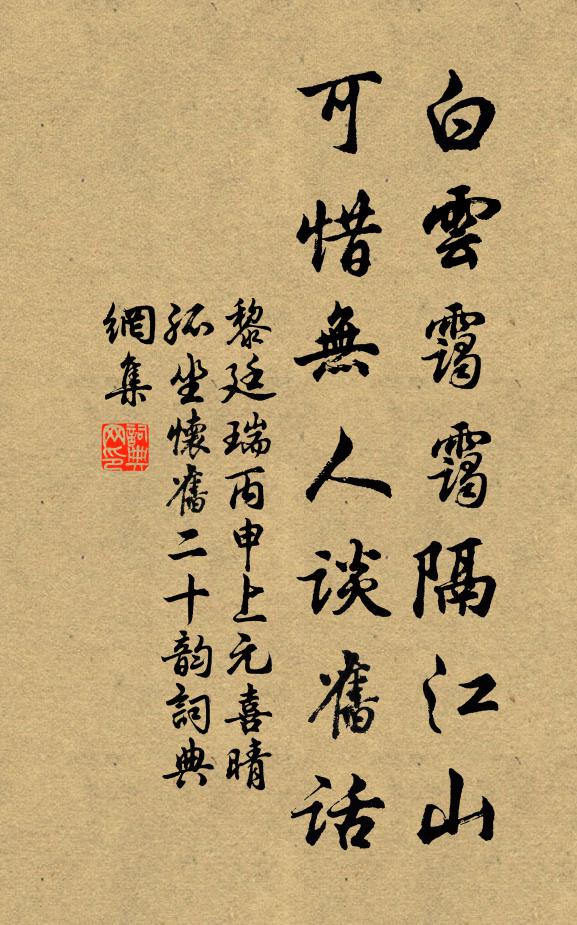 白雲靄靄隔江山
可惜無人談舊話
黎廷瑞丙申上元喜晴
孤坐懷舊二十韵詞典
網集
詞典網印